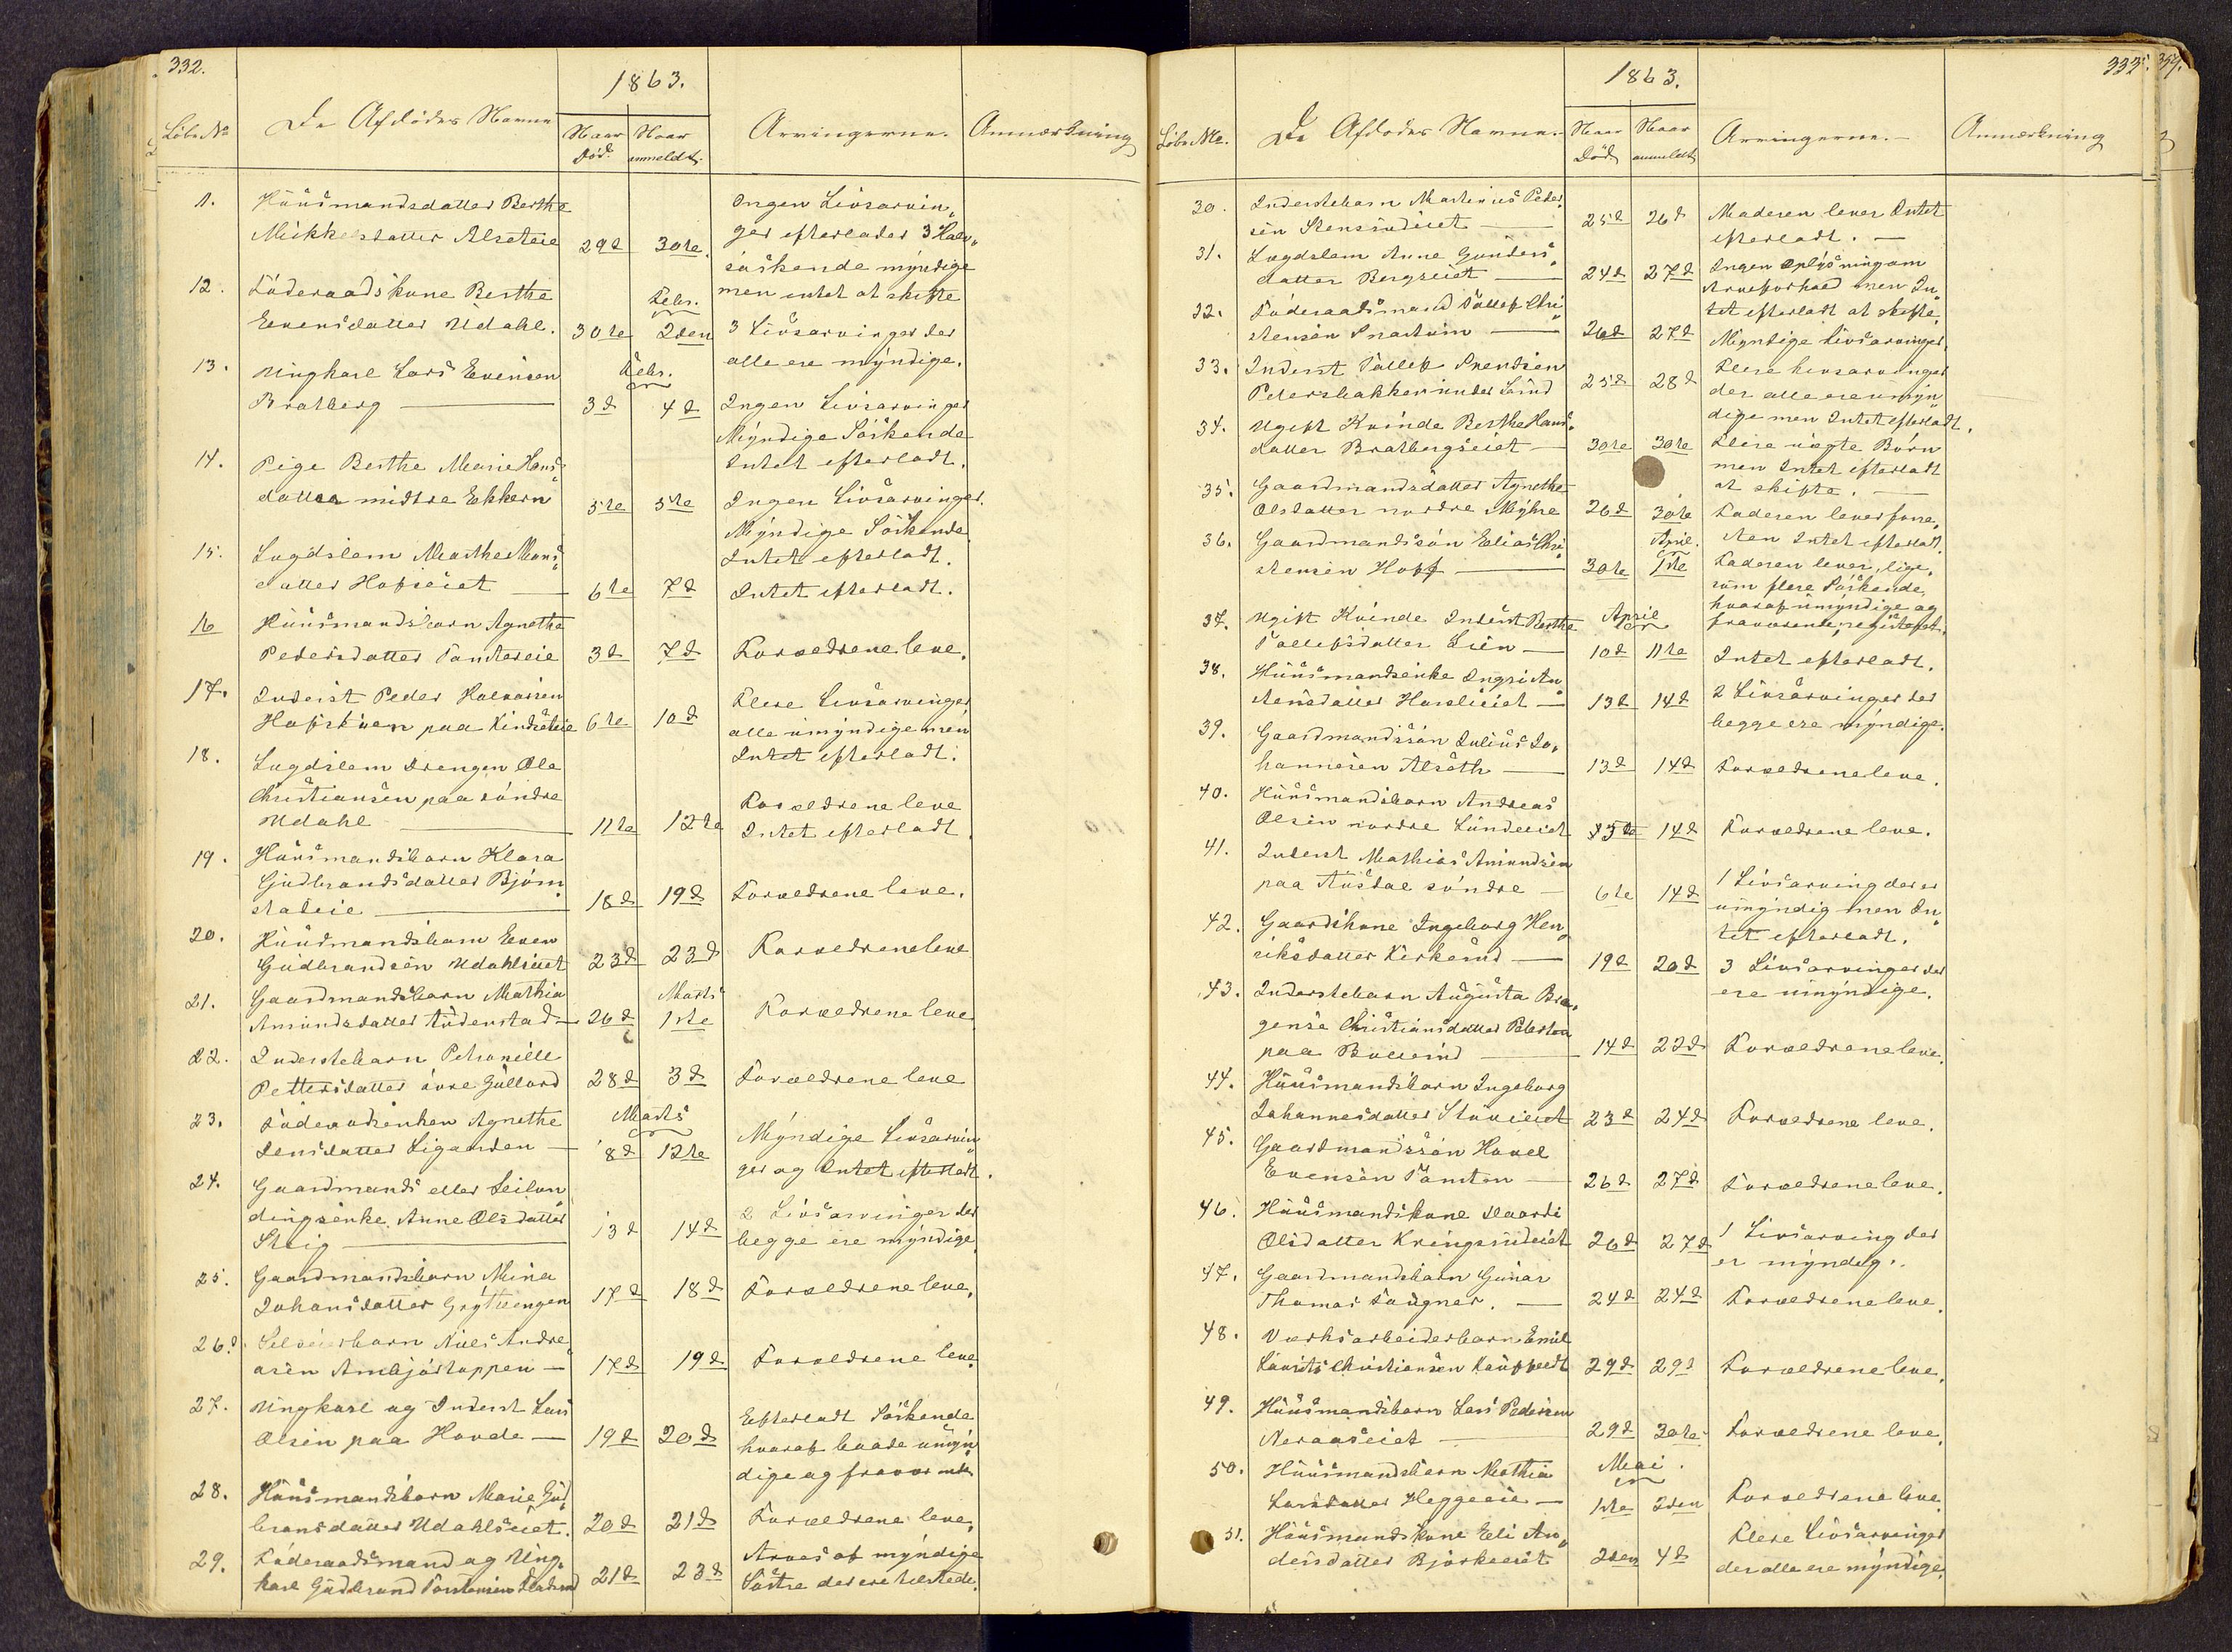 332.
1863.
Löbe No
De Afdödes Navne
Naar Död.
Naar anmeldt.
Arvingerne.
Anmærkning
11. Huusmandsdatter Berthe
Mikkelsdatter Alseteie 29d 30te.
Ingen Livsarvin„
ger efterlader 3 Halv„
søskende myndige
men intet at skifte
12. Föderaadskone Berthe
Evensdatter Udahl. 30te Febr. 2den
3 Livsarvinger der
alle ere myndige.
13. Ungkarl Lars Evensen
Bratberg — Febr. 3d 4d
Ingen Livsarvinger
Myndige Söskende
Intet efterladt.
14. Pige Berthe Marie Hans„
datter midtre Ekkern 5te 5te
Ingen Livsarvinger.
Myndige Söskende
Intet efterladt.
15. Lægdslem Marthe Mons„
datter Hofseiet — 6te 7d
Intet efterladt.
16 Huusmandsbarn Agnethe
Pedersdatter 3d 7d
Forældrene leve.
17. Inderst Peder Halvorsen
paa 6te 10d
Flere Livsarvinger
alle umyndige men
Intet efterladt.
18. Lægdslem Drengen Ole
Christiansen paa söndre
Udahl — 11te 12te
Forældrene leve
Intet efterladt.
19. Huusmandsbarn Klara
Gudbrandsdatter Björn„
stadeie — 18d 19d
Forældrene leve.
20. Huusmandsbarn Even
Gudbrandsen Udahlseiet 23d 23d
Forældrene leve
21. Gaardmandsbarn Mathia
Amundsdatter Audenstad — 26d Marts 1ste
Forældrene leve
22. Inderstebarn Petronille
Pettersdatter övre Gullord 28d 3d
Forældrene leve
23. Föderaadsenken Agnethe
Jensdatter Liganden — Marts 8d 12te
Myndige Livsarvin„
ger og Intet efterladt.
24. Gaardmands eller Leilæn„
dingsenke Anne Olsdatter
Steig — 13d 14d
2 Livsarvinger der
begge ere myndige
25. Gaardmandsbarn Mina
Johansdatter Grytvengen 17d 18d
Forældrene leve.
26. Selveierbarn Niels Andre„
asen — 17d 19d
Forældrene leve.
27. Ungkarl og Inderst Lars
Olsen paa Hovde — 19d 20d
Efterladt Söskende
hvoraf baade umyn„
dige og fraværende
28. Huusmandsbarn Marie Gud„
bransdatter Udahlseiet. 20d 21d
Forældrene leve.
29. Föderaadsmand og Ung„
karl Gudbrand Torstensen 21d 23d
Arves af myndige
Söstre der ere tilstede.
333.
1863.
Löbe No.
De Afdödes Navne.
Naar Död
Naar anmeldt
Arvingerne. —
Anmærkning
30. Inderstebarn Martinius Peder„
sen Stensrudeiet — 25d 26d
Moderen lever Intet
efterladt. —
31. Lægdslem Anne Gunders„
datter Bergseiet — 24d 27d
Ingen Oplysning om
Arveforhold men In„
tet efterladt at skifte.
32. Föderaadsmand Tollef Chri„
stensen — 26d 27d
Myndige Livsarvinger.
33. Inderst Tollef Svendsen
Petersbakken under Sund 25d 28d
Flere Livsarvinger
der alle ere umyn„
dige men Intet efterladt.
34. Ugift Kvinde Berthe Hans„
datter Bratbergseiet — 30te 30te
Flere uægte Börn
men Intet efterladt
at skifte. —
35. Gaardmandsdatter Agnethe
Olsdatter nordre Myhre 26d 30te
Faderen lever
Intet efterladt.
36. Gaardmandssön Elias Chri„
stensen Hoff — 30te April. 1ste
Faderen lever, lige„
som flere Söskende,
hvoraf umyndige og
fraværende; registeret.
37. Ugift Kvinde Inderst Berthe
Tollefsdatter Lien — April 10d 11te
Intet efterladt.
38. Huusmandsenke Ingri An„
tensdatter — 13d 14d
2 Livsarvinger der
begge ere myndige.
39. Gaardmandssön Julius Jo„
hannesen Alseth — 13d 14d
Forældrene leve.
40. Huusmandsbarn Andreas
Olsen nordre Lundeeiet 13te 14d
Forældrene leve.
41. Inderst Mathias Amundsen
paa Austad söndre — 6te 14d
1 Livsarving der er
umyndig men In„
tet efterladt.
42. Gaardskone Ingeborg Hen„
riksdatter Kirkerud — 19d 20d
3 Livsarvinger der
ere umyndige.
43. Inderstebarn Augusta Bra„
gensе Christiansdatter
paa — 14d 22d
Forældrene leve.
44. Huusmandsbarn Ingeborg
Johannesdatter 23d 24d
Forældrene leve.
45. Gaardmandssön Hovel
Evensen Tömten — 26d 27d
Forældrene leve.
46. Huusmandskone Kaardi
Olsdatter Kringsrudeiet 26d 27d
1 Livsarving der
er myndig.
47. Gaardmandsbarn Gunar
Thomas Faugner. — 24d 24d
Forældrene leve.
48. Værksarbeiderbarn Emil
Laurits Christiansen Kaupfeldt 29d 29d
Forældrene leve.
49. Huusmandsbarn Lars Pedersen
Neraaseiet — 29d 30te
Forældrene leve.
50. Huusmandsbarn Mathia
Larsdatter Heggeeie — Mai. 1ste 2den
Forældrene leve.
51. Huusmandskone Eli An„
dersdatter Björkeeiet 2den 4d
Flere Livsarvinger
der alle ere myndige.